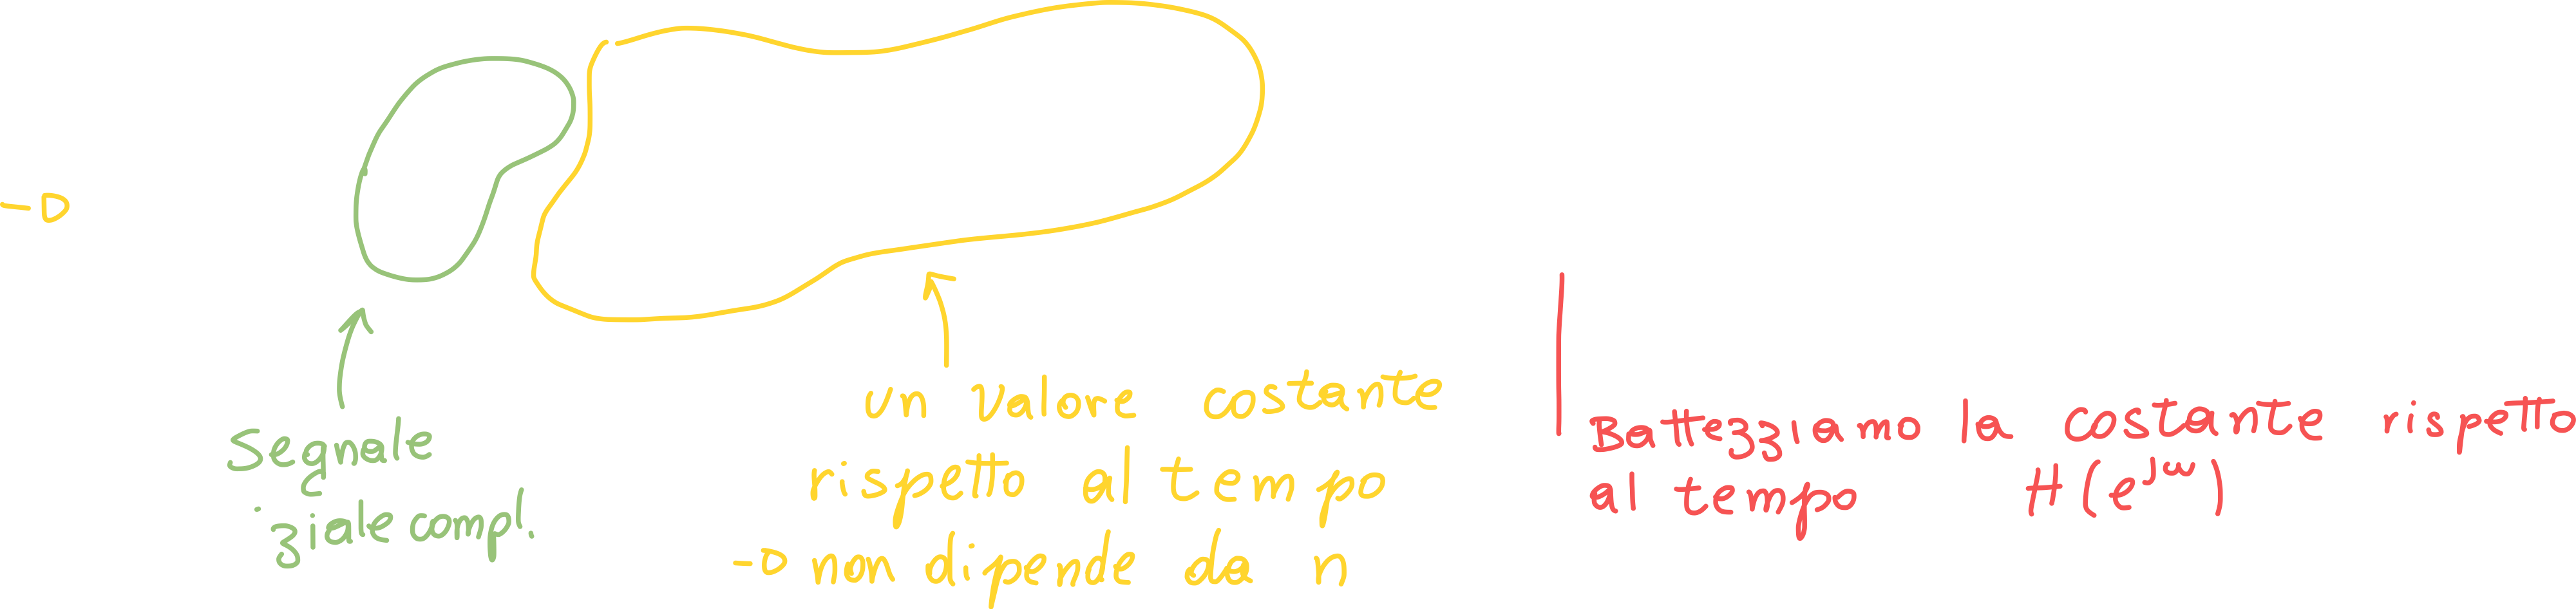 Segnale
ziale compl.
un valore costante
rispetto al tempo
non dipende da n
Battezziamo la costante rispetto
al tempo H(e^jω)